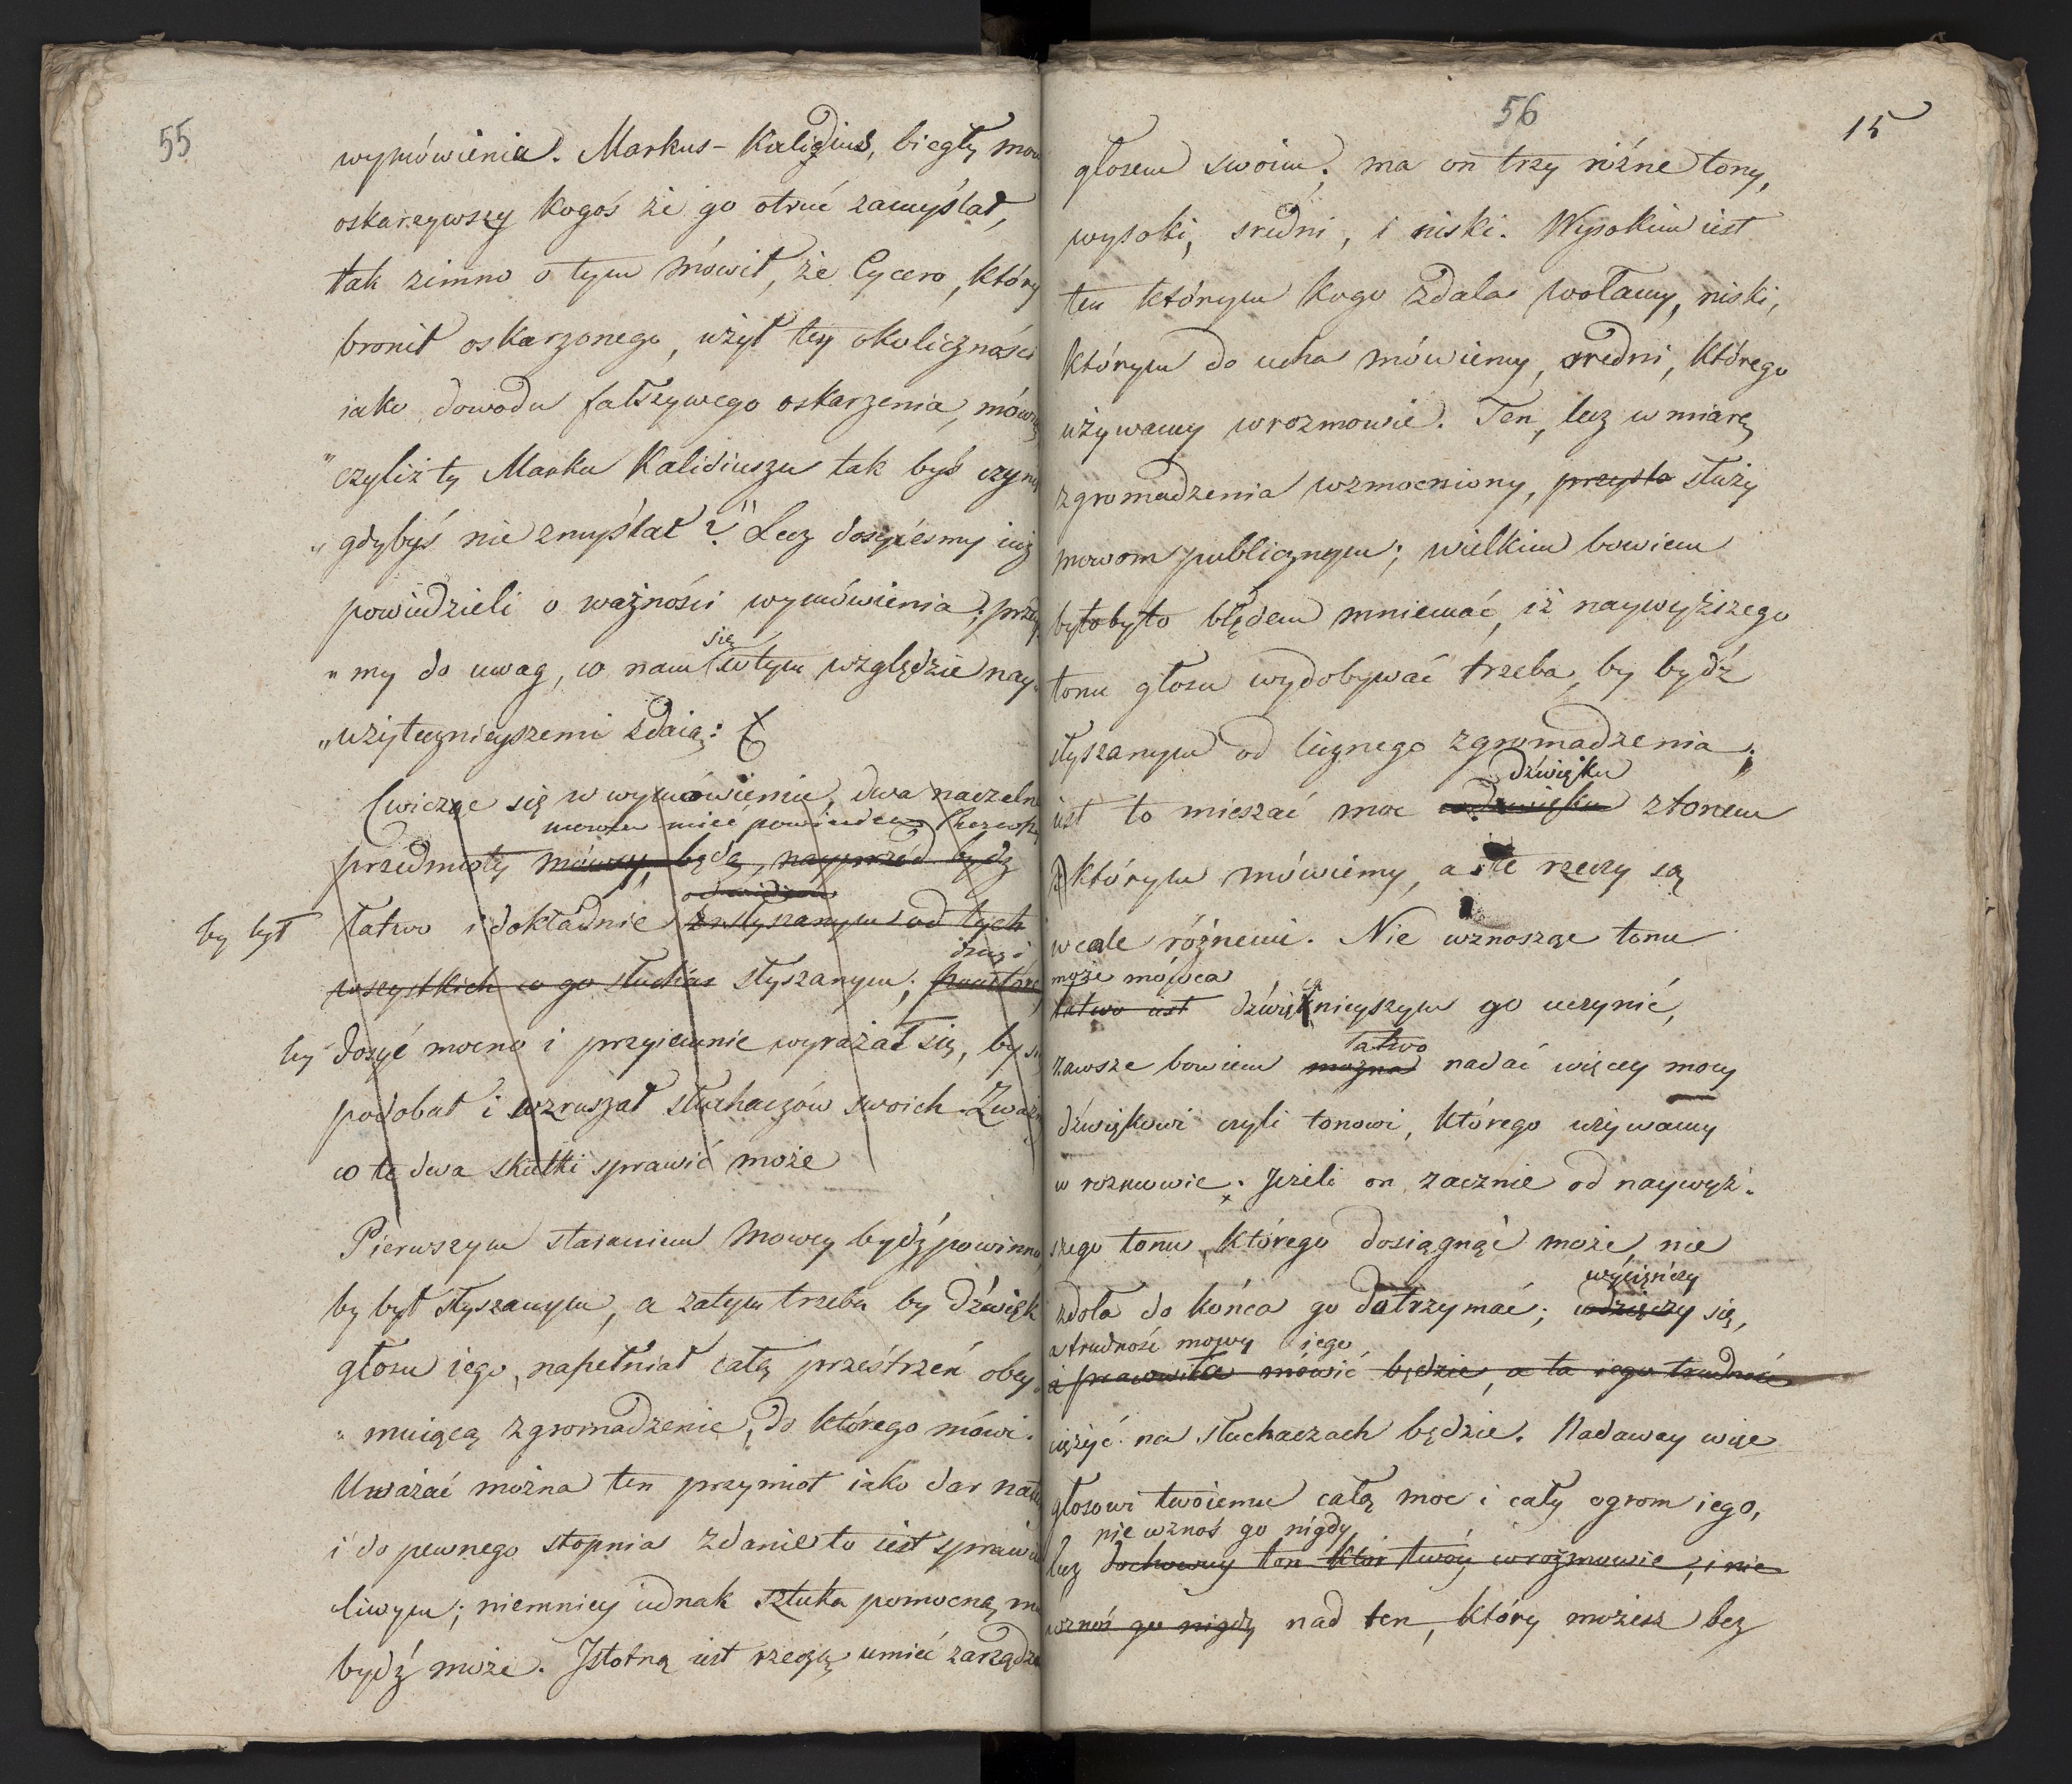 55
wymówienia. Markus-Kalidius, biegły mow
oskarzywszy kogoś że go otruć zamyślał,
tak zimno o tym mówił, że Cycero, który
bronił oskarzonego, użył tey okoliczności
iako dowodu fałszywego oskarzenia, mówią
"czyliż ty Marku Kalidiuszu tak byś czyni
"gdybyś nie zmyślał?" Lecz dosyćeśmy iuż
powiedzieli o ważności wymówienia; przey
"my do uwag, co nam się w tym względzie nay"
"użytecznieyszemi zdaią:
Cwicząc się w wymówieniu, dwa naczelne
mowca mieć powinien
przedmioty mówcy, będą, nayprzód bydź
by był łatwo i dokładnie zrstyszanym od tych
drugi
wszystkich co go słuchaią słyszanym; powtóre
by dosyć mocno i przyiemnie wyrażał się, by się
podobał i wzruszał słuchaczów swoich. Zważmy
co te dwa skutki sprawić może
Pierwszym staraniem Mowcy bydź powinno
by był słyszanym, a zatym trzeba by dźwięk
głosu iego, napełniał całą przestrzeń obey"
"muiącą zgromadzenie, do którego mówi.
Uważać można ten przymiot iako dar natu
i do pewnego stopnia zdanie to iest sprawied
liwym; niemniey iednak sztuka pomocną mu
bydź może. Istotną iest rzeczą umieć zarządza
56
15
głosem swoim; ma on trzy różne tony,
wysoki, sredni, i niski. Wysokim iest
ten którym kogo zdala wołamy, niski,
którym do ucha mówiemy, sredni, którego
używamy w rozmowie. Ten, lecz w miarę
zgromadzenia wzmocniony, przysto służy
mowom publicznym; wielkim bowiem
byłobyto błędem mniemać, iż naywyższego
tonu głosu wydobywać trzeba, by bydź
słyszanym od licznego zgromadzenia;
dźwięku
iest to mieszać moc dzwięku z tonem
z którym mówiemy, a te rzeczy są
wcale różnemi. Nie wznosząc tonu
może mówca
łatwo iest dźwięcznieyszym go uczynić,
łatwo
zawsze bowiem można nadać więcey mocy
dźwiękowi czyli tonowi, którego używamy
w rozmowie. Jeżeli on zacznie od naywyż"
szego tonu, którego dosiągnąć może, nie
wycieńczy
zdoła do końca go dotrzymać; wdzięczy się,
a trudność mowy iego
i pracowicie mówić będzie, a ta iego trudność
ciężyć na słuchaczach będzie. Nadaway więc
głosowi twoiemu całą moc i cały ogrom iego,
nie wznoś go nigdy
lecz dochoway ton któr twóy w rozmowie, i nie
wznoś go nigdy nad ten, który możesz bez